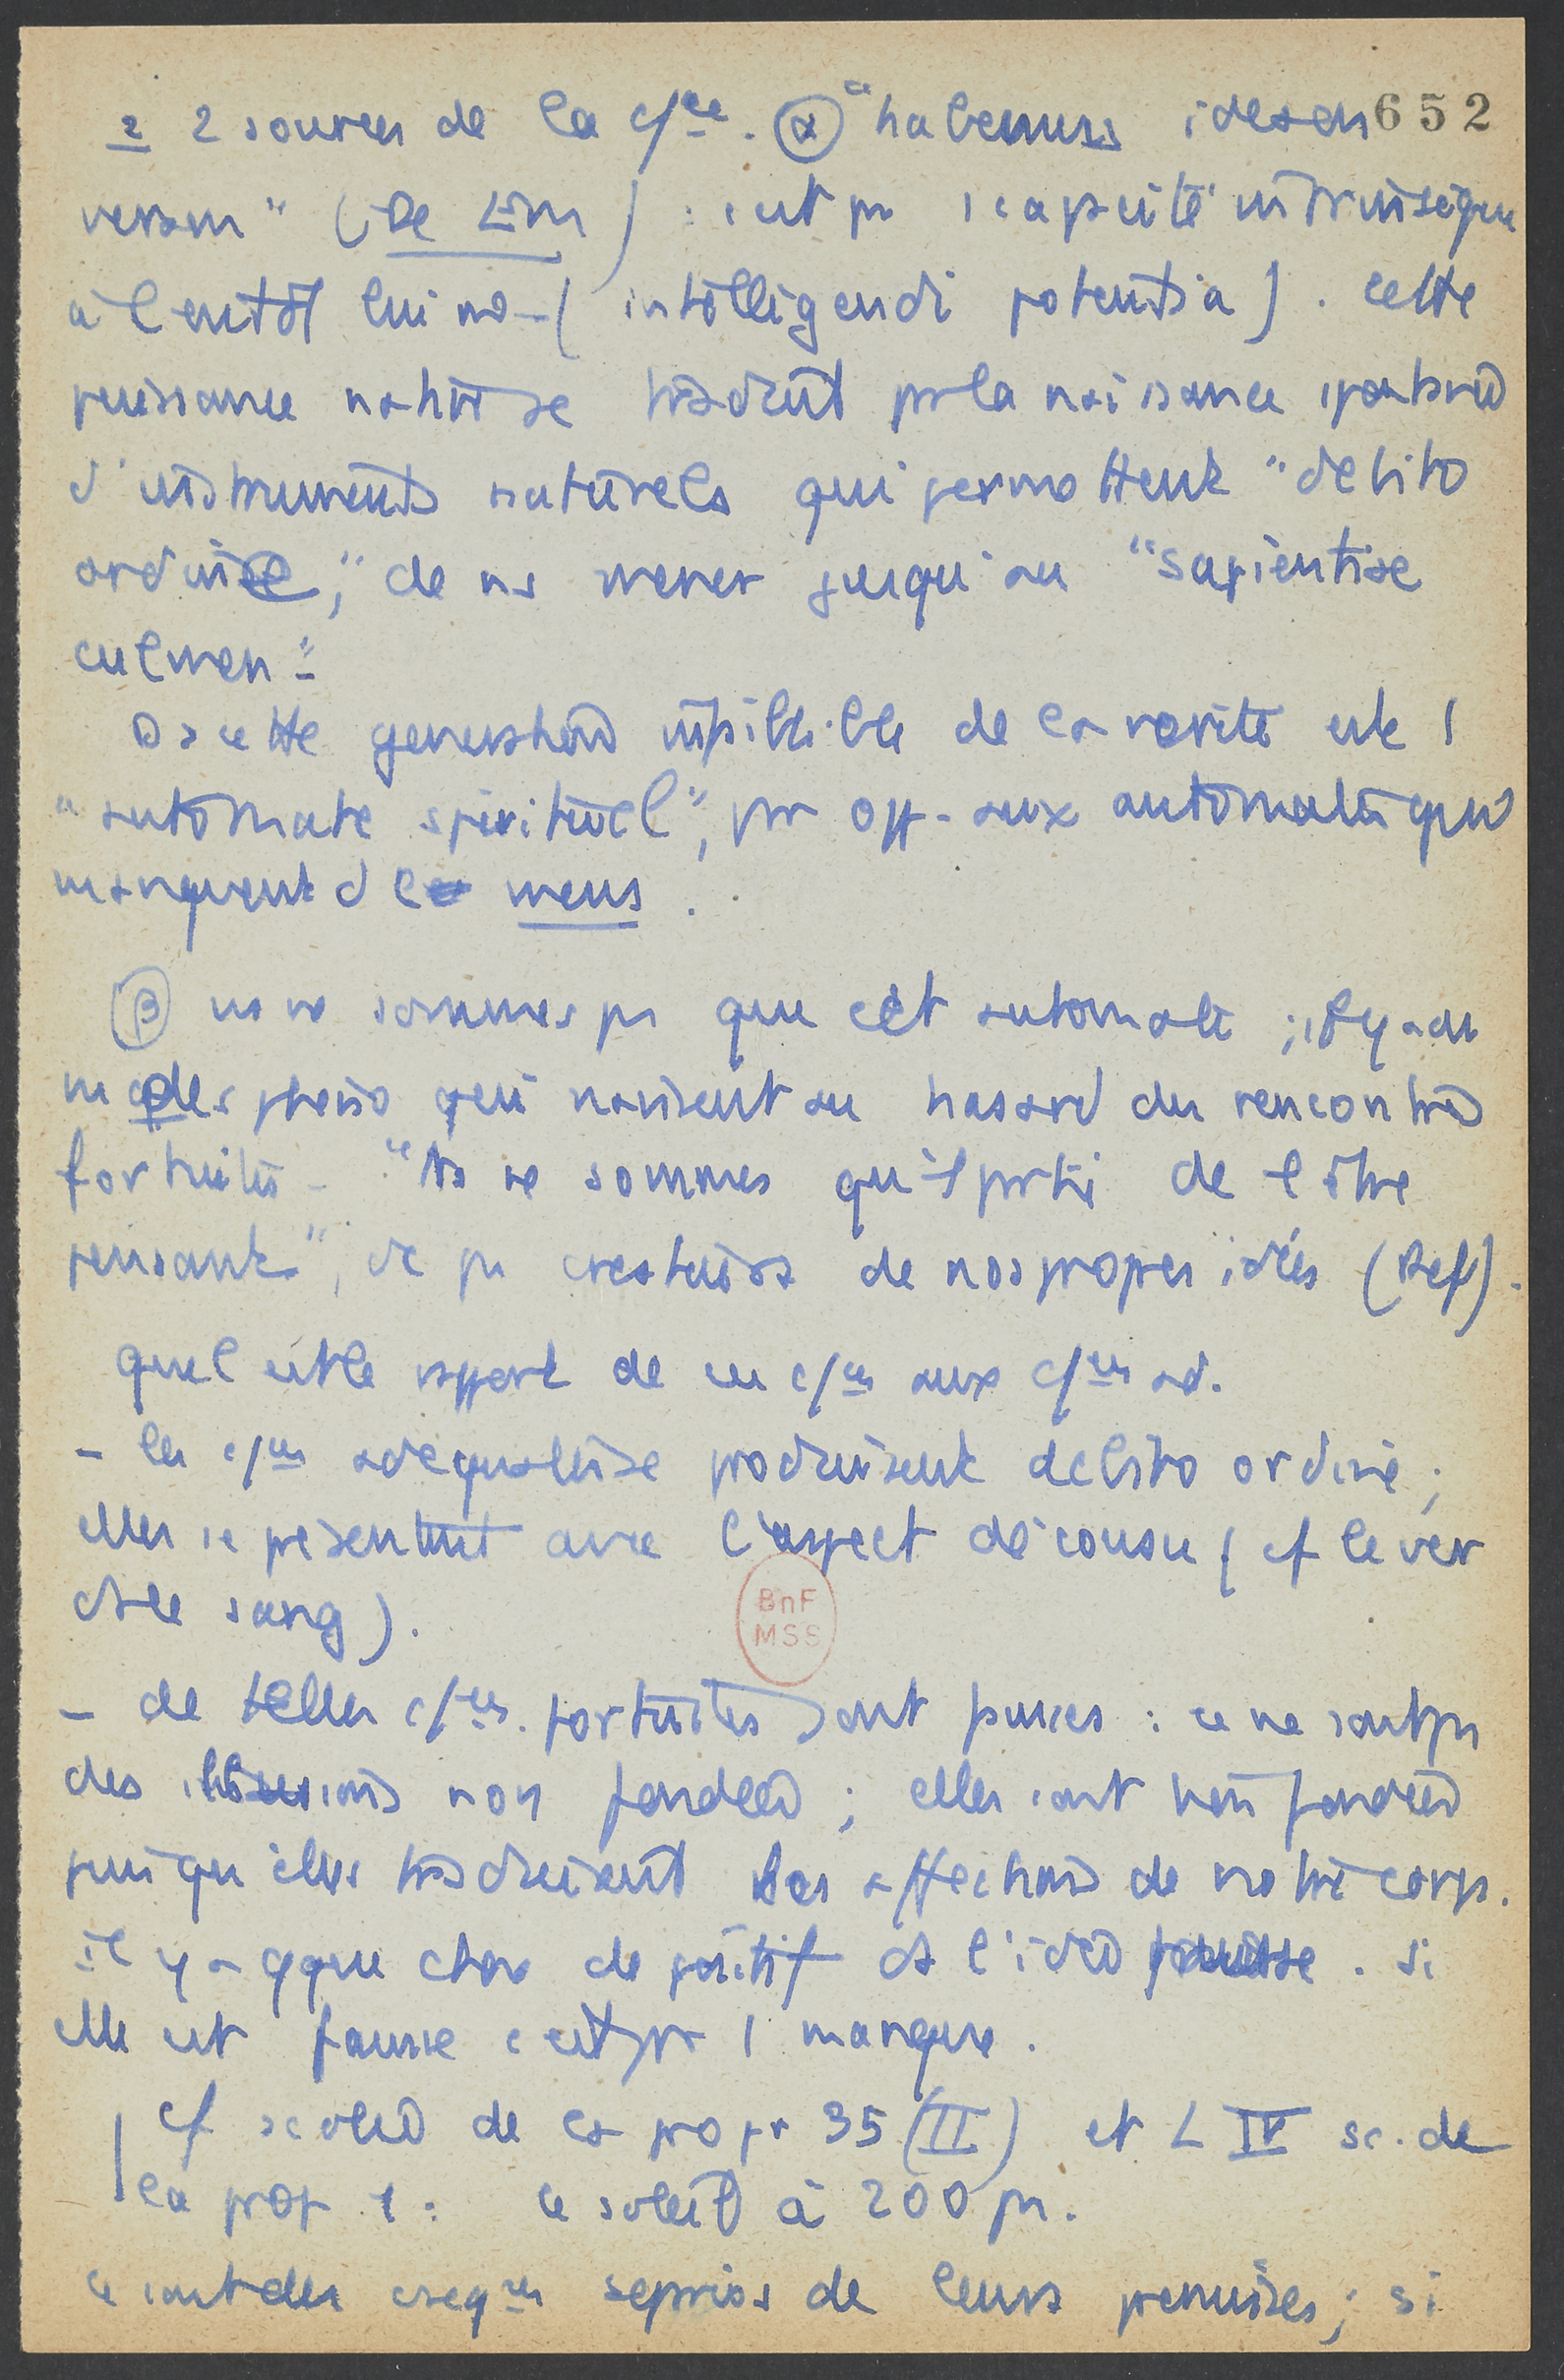 2 2 sources de la c/ce. (α) "habemus ideam 652
veram" (De Em) : c'est pr 1 capacité intrinsèque
à l'entdt lui m - (intelligendi potentia). cette
puissance native se traduit par la naissance spontanée
d'instruments naturels qui permettent "debito
ordine", de ns mener jusqu'au "sapientiae
culmen".
Ds cette génération infaillible de la vérité est l
"automate spirituel", pr opp. aux automates qui
manquent de mens.
(β) ns ne sommes ps que cet automate ; il y a des
qui naissent au hasard des rencontres
fortuites - "Ns ne sommes qu'1 partie de l'être
pensant", et ps créateurs de nos propres idées (Ref).
quel est le rapport de ces c/ces aux c/ces ad.
- les c/ces adéquates se produisent debito ordine ;
elles se présentent avec l'aspect décousu (cf le ver
ds le sang).
BnF
MSS
- de telles c/ces fortuites sont fausses : ce ne sont ps
des illusions non fondées ; elles sont bien fondées
puisqu'elles traduisent les affections de notre corps.
il y a qque chose de positif ds l'idée fausse. si
elle est fausse c'est par 1 manque.
cf scolie de la prop 35 (II) et L IV sc. de
la prop 1 : le soleil à 200 ps.
ce sont des cséqces séparées de leurs prémisses ; si